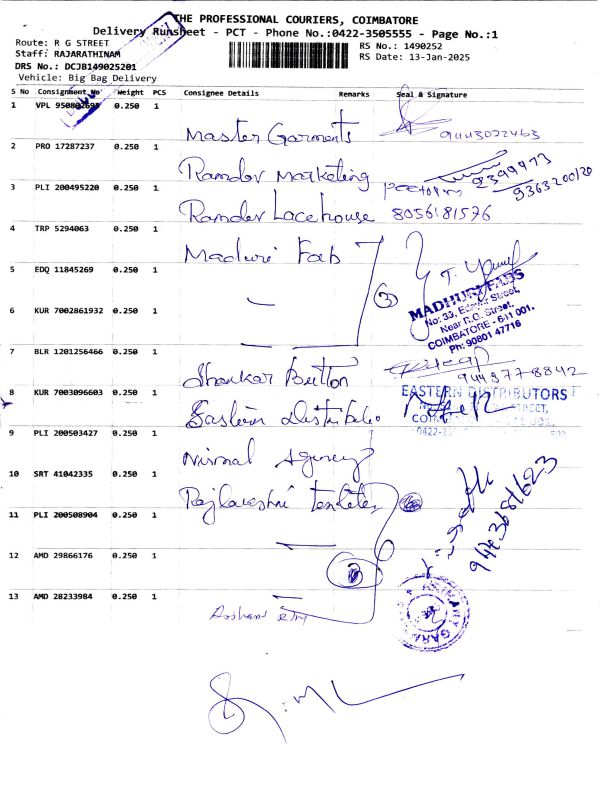 THE PROFESSIONAL COURIERS, COIMBATORE
Delivery Runsheet - PCT - Phone No.:0422-3505555 - Page No.:1
Route: R G STREET
RS No.: 1490252
Staff: RAJARATHINAM
RS Date: 13-Jan-2025
DRS No.: DCJB149025201
Vehicle: Big Bag Delivery
S No Consignment No Weight PCS Consignee Details Remarks Seal & Signature
1 VPL 0.250 1
Master Garments 9443022463
2 PRO 17287237 0.250 1
Ramdev Marketing 2399973
9363200120
3 PLI 200495220 0.250 1
Ramdev Lacehouse 8056181576
4 TRP 5294063 0.250 1
Maduri Fab
5 EDQ 11845269 0.250 1
—
3
MADHURI FABS
No: 33, Street,
Near R.G. Street,
COIMBATORE - 641 001.
Ph: 90801 47716
6 KUR 7002861932 0.250 1
—
7 BLR 1201256466 0.250 1
Shankar Button 9443778842
8 KUR 7003096603 0.250 1
Eastern Distributo
EASTERN DISTRIBUTORS
STREET,
9 PLI 200503427 0.250 1
Nirmal Agency
10 SRT 41042335 0.250 1
Rajlakshmi
11 PLI 200508904 0.250 1
—
9443681623
12 AMD 29866176 0.250 1
—
13 AMD 28233984 0.250 1